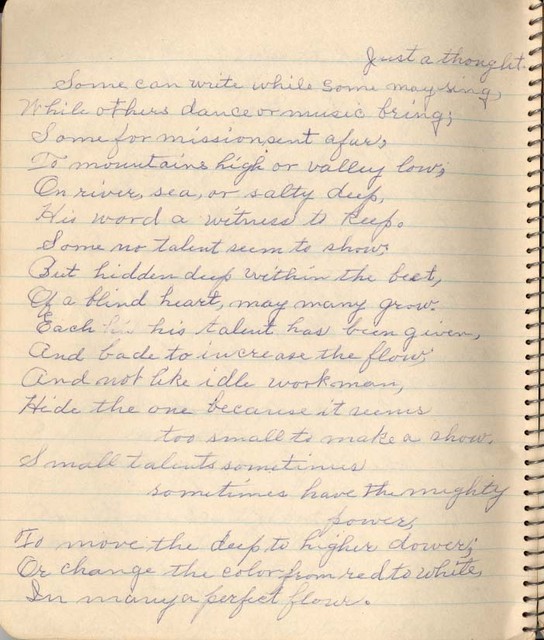 Just a thought.
Some can write while some may sing,
While others dance or music bring;
Some for mission, sent afar,
To mountains high or valley low;
On river, sea, or salty deep,
His word a witness to keep.
Some no talent seem to show;
But hidden deep within the beet,
Of a blind heart, may many grow.
Each his talent has been given,
And bade to increase the flow;
And not like idle workman,
Hide the one because it seems
too small to make a show.
Small talents sometimes
sometimes have the mighty
power,
To move the deep to higher dower;
Or change the color from red to white,
In many a perfect flour.